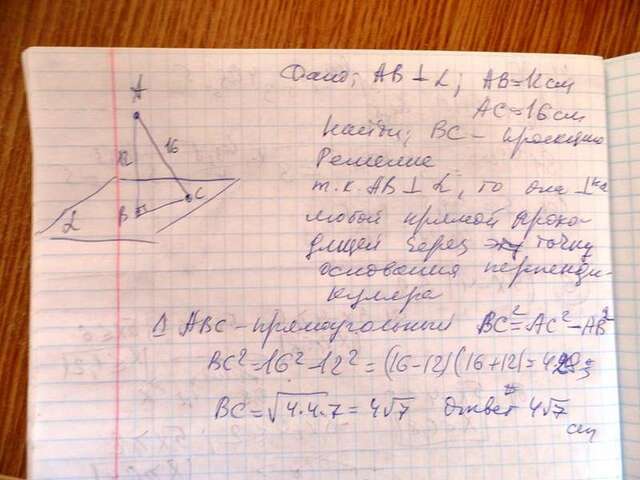 Дано: AB ⊥ α; AB=12см
AC=16см
Найти: BC – проекцию
Решение
т.к. AB ⊥ α, то она ⊥ на
любой прямой прохо-
дящей через точку
основания перпенди-
куляра
Δ ABC – прямоугольный BC²=AC²–AB²
BC²=16²–12²=(16–12)(16+12)=4
BC=√4·4·7=4√7 Ответ 4√7
см
A
12
16
B
C
α